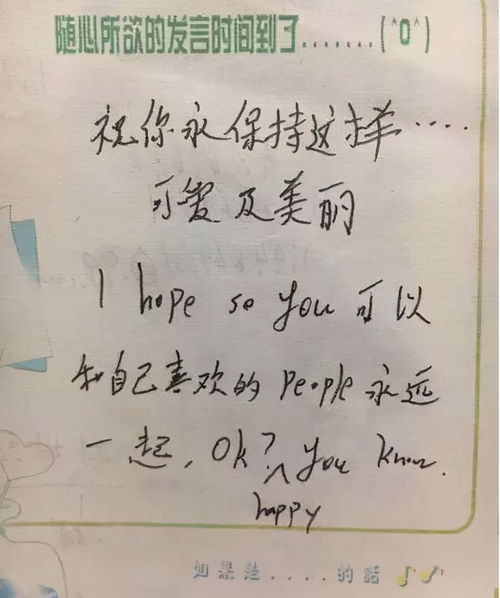 随心所欲的发言时间到了........(^O^)
祝你永保持这样····
可爱及美丽
I hope so you 可以
和自己喜欢的 people 永远
一起, Ok? ^ you know.
happy
如果是....的話